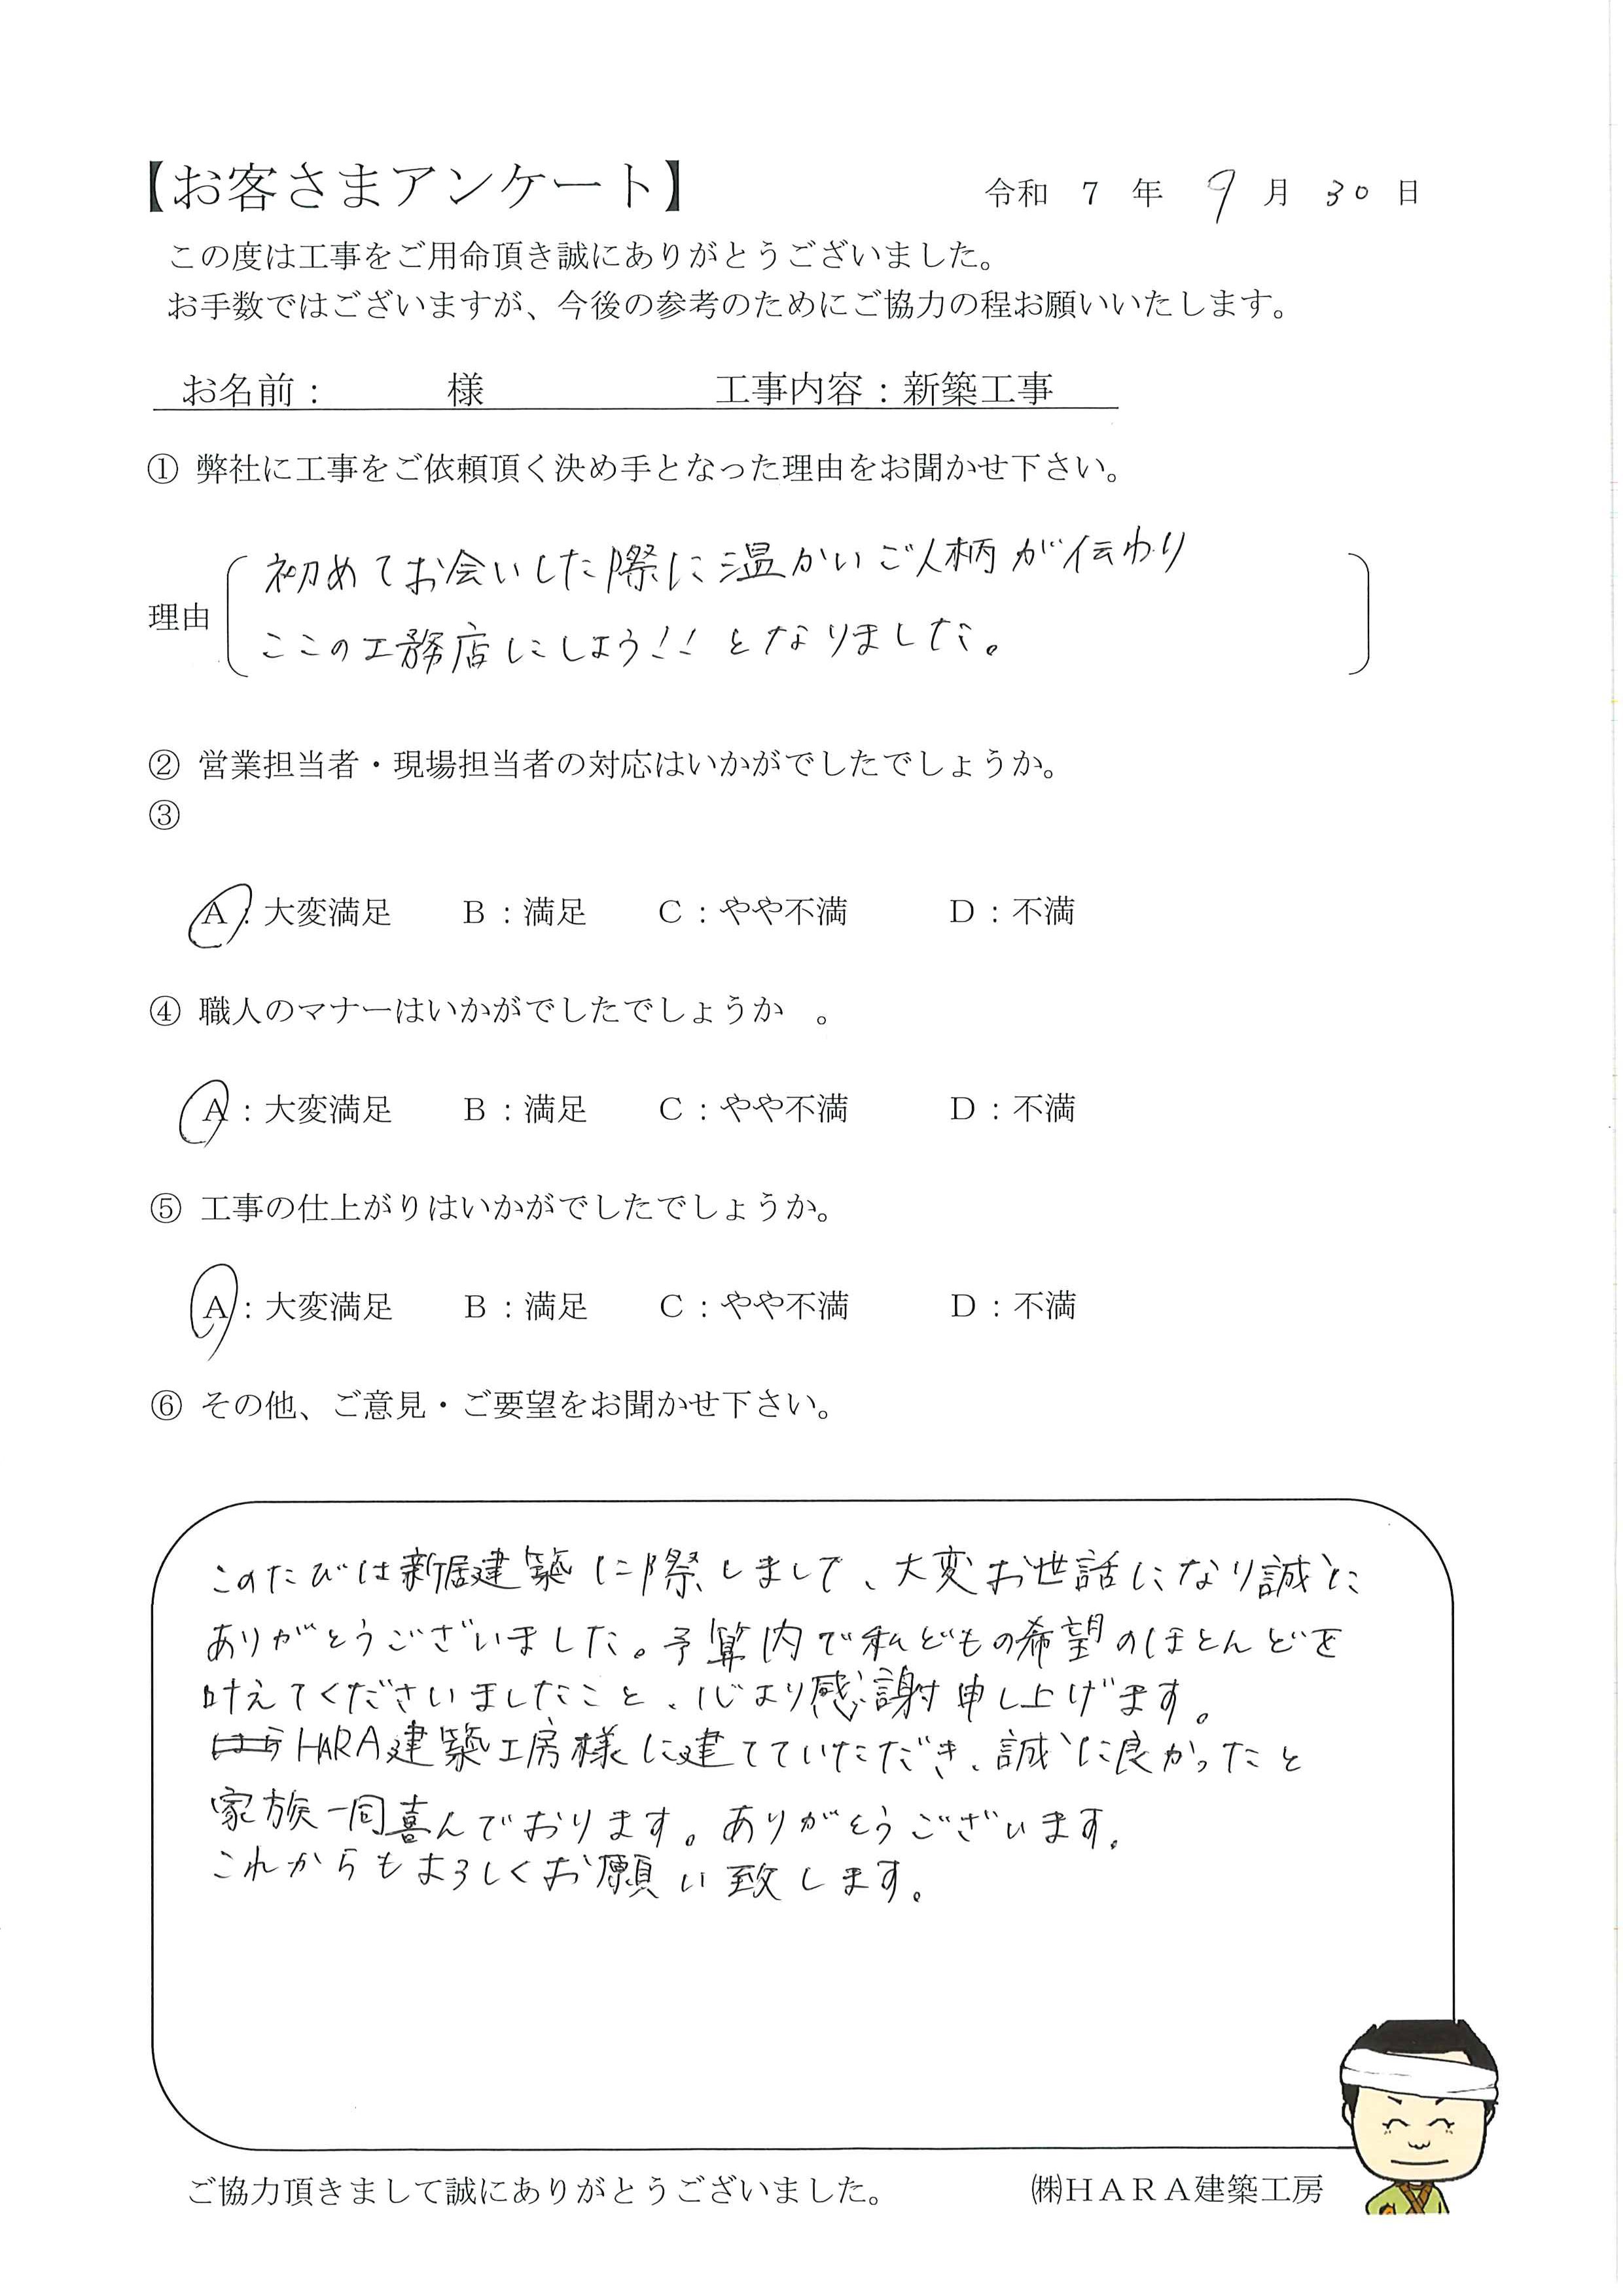 【お客さまアンケート】
令和 7 年 9 月 30 日
この度は工事をご用命頂き誠にありがとうございました。
お手数ではございますが、今後の参考のためにご協力の程お願いいたします。
お名前： 様 工事内容：新築工事
① 弊社に工事をご依頼頂く決め手となった理由をお聞かせ下さい。
初めてお会いした際に温かいご人柄が伝わり
理由
ここの工務店にしよう!! となりました。
② 営業担当者・現場担当者の対応はいかがでしたでしょうか。
③
A：大変満足 B：満足 C：やや不満 D：不満
④ 職人のマナーはいかがでしたでしょうか 。
A：大変満足 B：満足 C：やや不満 D：不満
⑤ 工事の仕上がりはいかがでしたでしょうか。
A：大変満足 B：満足 C：やや不満 D：不満
⑥ その他、ご意見・ご要望をお聞かせ下さい。
このたびは新居建築に際しまして、大変お世話になり誠に
ありがとうございました。予算内で私どもの希望のほとんどを
叶えてくださいましたこと、心より感謝申し上げます。
HARA建築工房様に建てていただき、誠に良かったと
家族一同喜んでおります。ありがとうございます。
これからもよろしくお願い致します。
ご協力頂きまして誠にありがとうございました。 ㈱HARA建築工房